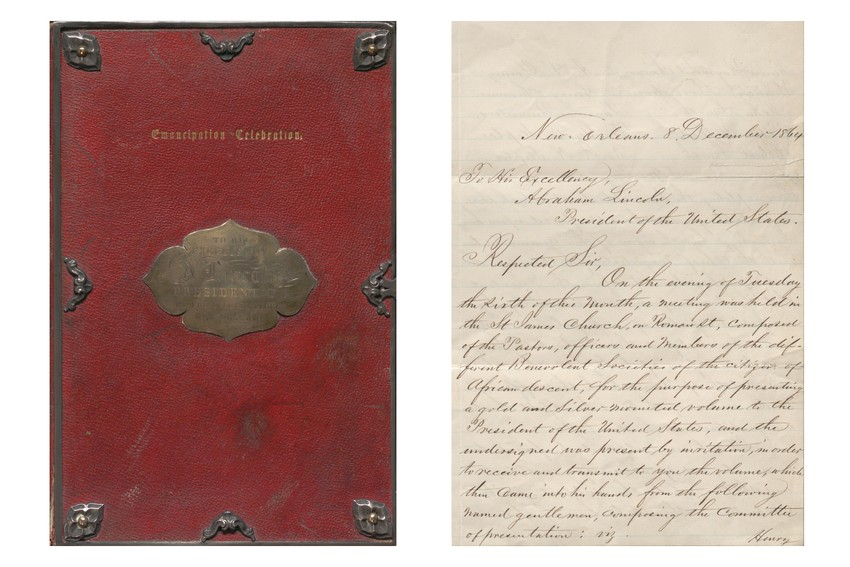 Emancipation Celebration.
PRESIDENT
New Orleans. 8, December 1864
To His Excellency,
Abraham Lincoln,
President of the United States.
Respected Sir,
On the evening of Tuesday
the sixth of this Month, a meeting was held in
the St James Church, on Roman St, composed
of the Pastors, officers and Members of the dif-
ferent Benevolent Societies of the citizens of
African descent, for the purpose of presenting
a gold and silver mounted volume to the
President of the United States, and the
undersigned was present by invitation, in order
to receive and transmit to you the volume, which
then came into his hands from the following
named gentlemen, composing the Committee
of presentation: viz
Henry